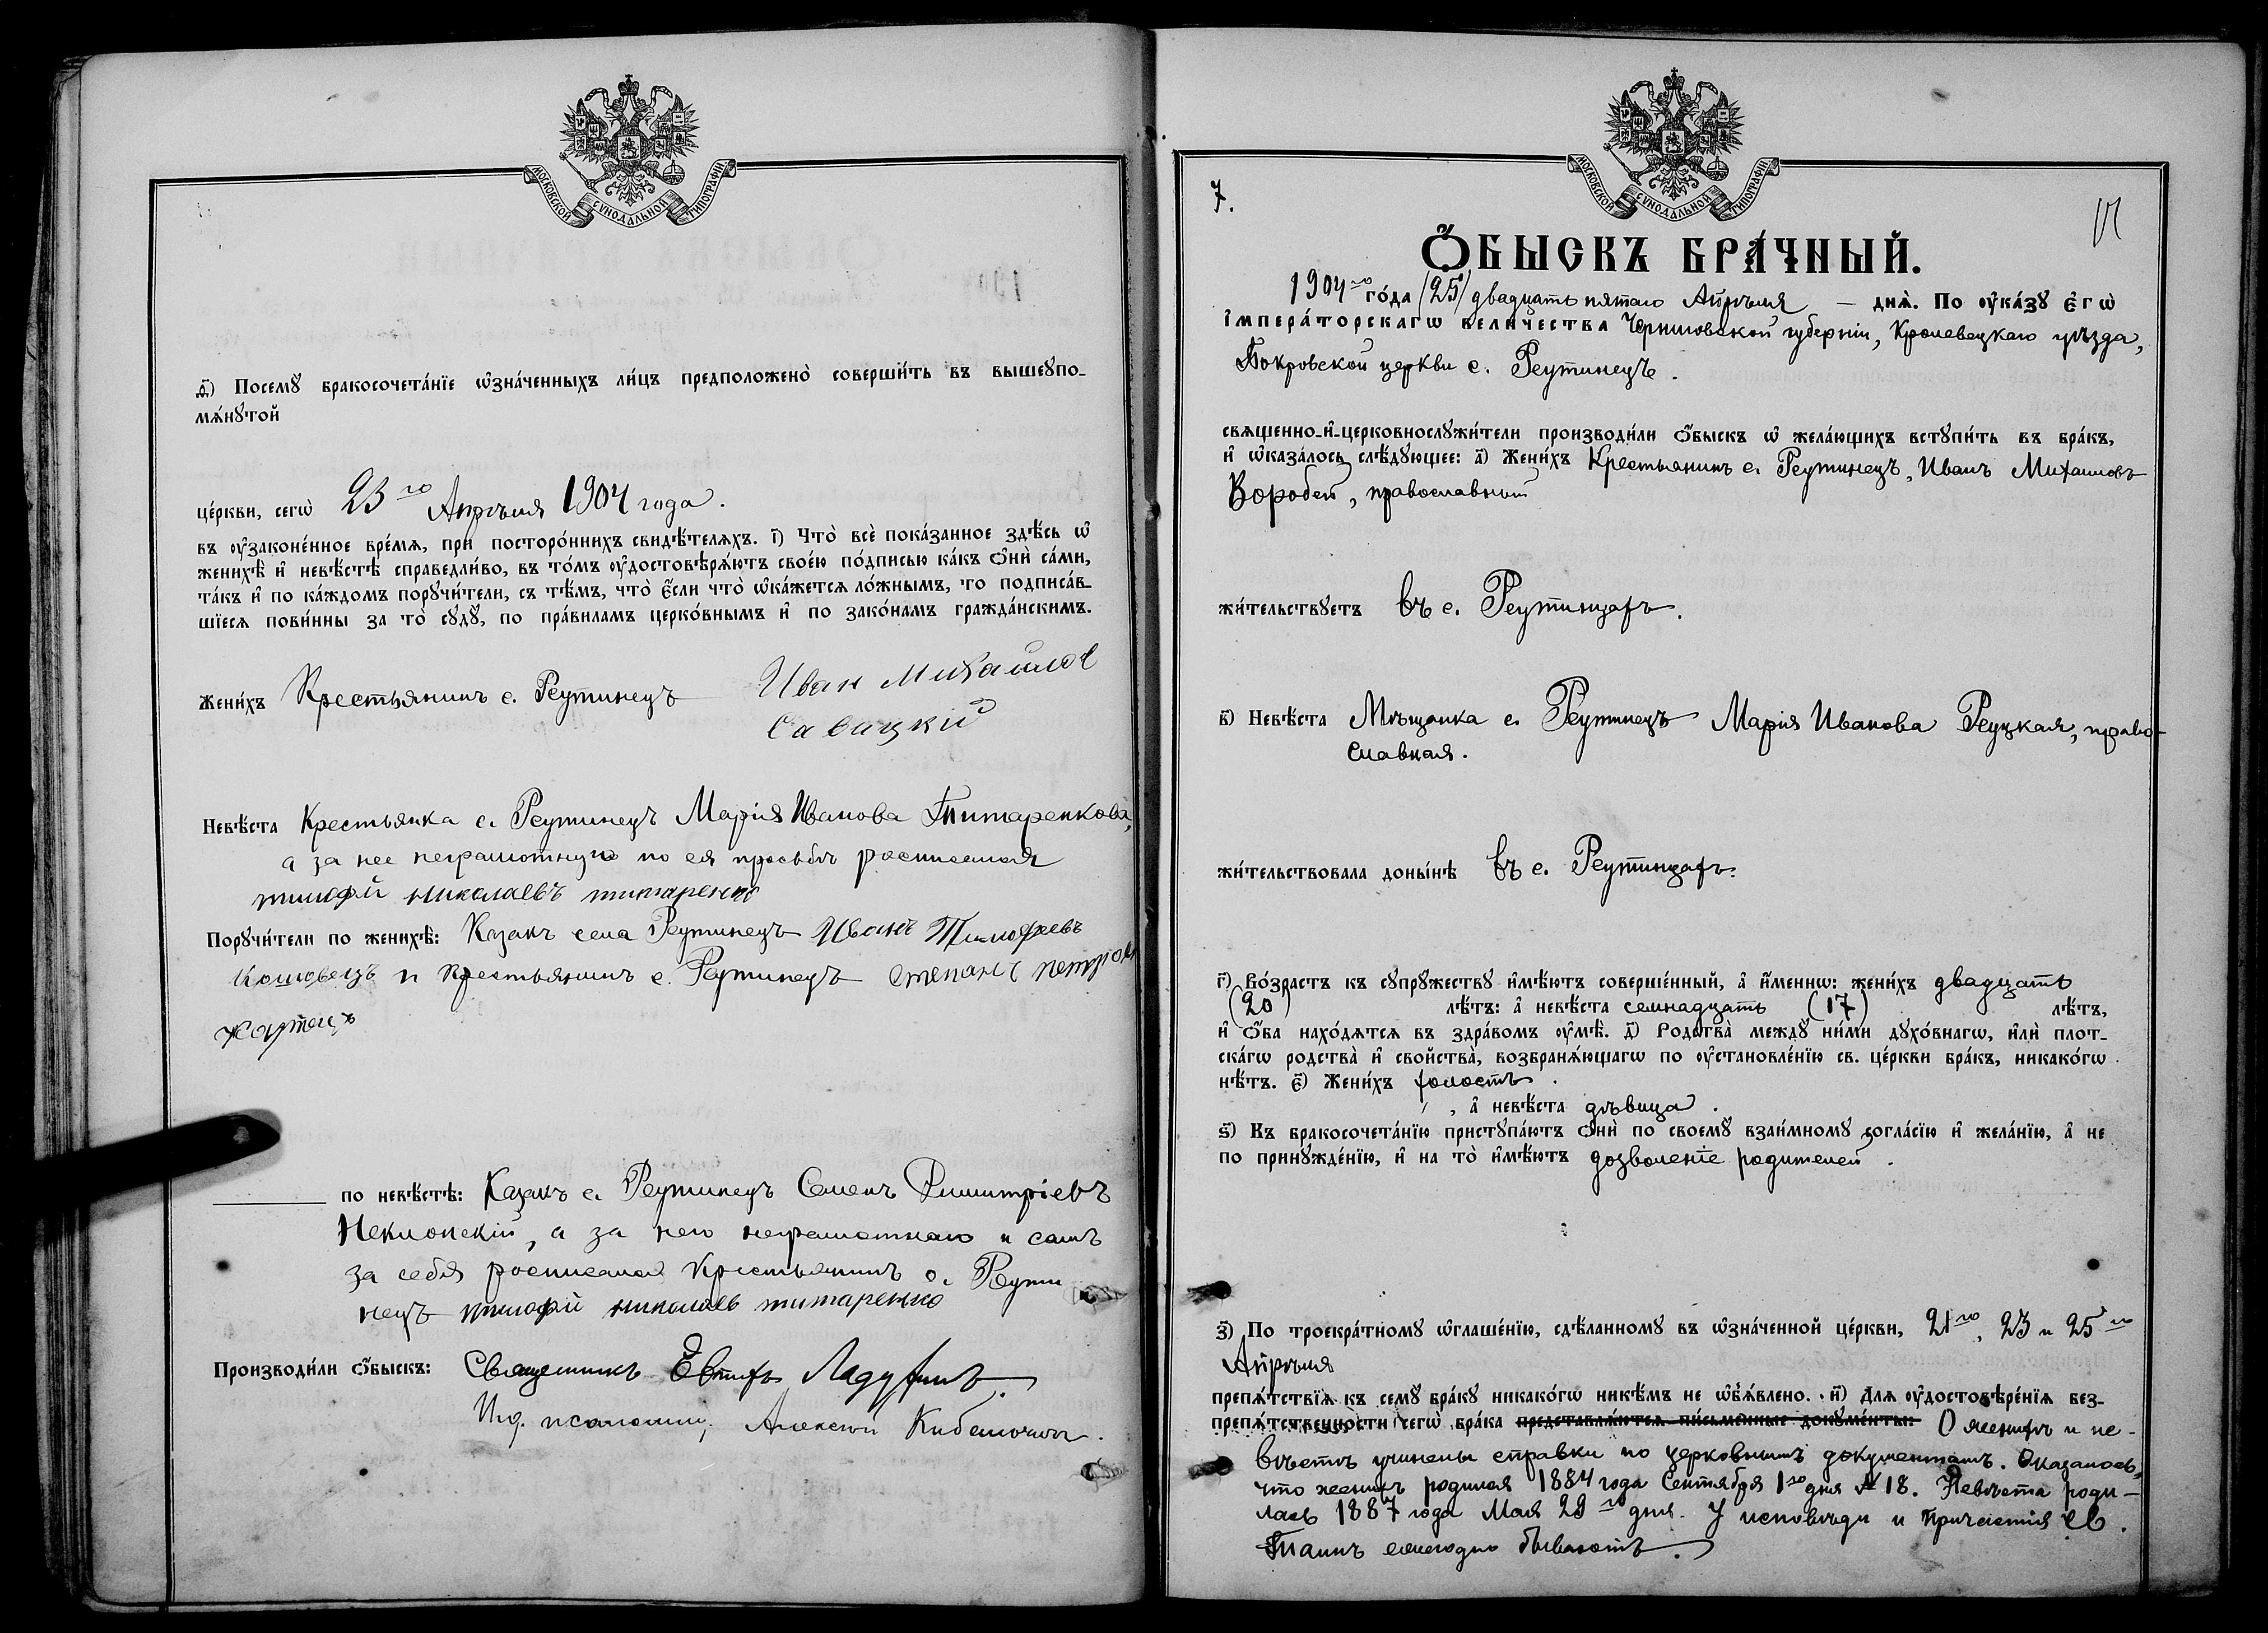 МОСКОВСКОЙ СѴНОДАЛЬНОЙ ТИПОГРАФІИ
д҃) Посемꙋ̀ бракосочета́нїе ѡ҆зна́ченныхъ ли́цъ предположено̀ соверши́ть въ вышеꙋпо-
мѧ́нꙋтой
це́ркви, сегѡ̀ 23го Апрѣля 1904 года.
въ ᲂу҆законе́нное вре́мѧ, при посторо́ннихъ свидѣ́телѧхъ. і҃) Что̀ всѐ пока́занное здѣ́сь ѡ҆
женихѣ̀ и҆ невѣ́стѣ справедли́во, въ то́мъ ᲂу҆достовѣрѧ́ютъ свое́ю по́дписью ка́къ ѻ҆нѝ са́ми,
та́къ и҆ по ка́ждомъ порꙋчи́тели, съ тѣ́мъ, что̀ є҆́сли что̀ ѡ҆ка́жетсѧ ло́жнымъ, то подписа́в-
шїесѧ пови́нны за то̀ сꙋдꙋ̀, по пра́виламъ церко́внымъ и҆ по зако́намъ гражда́нскимъ.
Жени́хъ Крестьянинъ с. Реутинецъ Иван Михайлов
Савицкий
Невѣ́ста Крестьянка с. Реутинецъ Марія Иванова Титаренкова,
а за нее неграмотную по ея просьбѣ росписался
тимофй николаевъ титаренко
Порꙋчи́тели по женихѣ̀: Казакъ села Реутинецъ Иванъ Тимофеевъ
Кошовецъ и Крестьянинъ с. Реутинецъ степанъ петров
по невѣ́стѣ: Казакъ с. Реутинецъ Семенъ Димитріевъ
Неклонскій, а за него неграмотнаго и самъ
за себя росписался Крестьянинъ с. Реути
нецъ тимофй николаев титаренко
Производи́ли ѻ҆́быскъ: Священникъ Евтихъ
И.д. псаломщ. Алексей
МОСКОВСКОЙ СѴНОДАЛЬНОЙ ТИПОГРАФІИ
7.
Ѻ҆́БЫСКЪ БРА́ЧНЫЙ.
1904го го́да (25) двадцать пятаго Апрѣля — днѧ̀. По ᲂу҆ка́зꙋ Є҆гѡ̀
І҆мпера́торскагѡ Вели́чества Черниговской губерніи, Кролевецкаго уѣзда,
Покровской церкви с. Реутинецъ.
свѧще́нно-и҆-церковнослꙋжи́тели производи́ли ѻ҆́быскъ ѡ҆ жела́ющихъ вступи́ть въ бра́къ,
и҆ ѡ҆каза́лось слѣ́дꙋющее: а҃) Жени́хъ Крестьянинъ с. Реутинецъ, Иванъ Михаиловъ
Воробей, православный
жи́тельствꙋетъ въ с. Реутинцахъ.
в҃) Невѣ́ста Мѣщанка с. Реутинецъ Марія Иванова Реуцкая, право-
славная.
жи́тельствовала донынѣ̀ въ с. Реутинцахъ.
г҃) Во́зрастъ къ сꙋпрꙋ́жествꙋ и҆мѣ́ютъ соверше́нный, а҆ и҆́меннѡ: жени́хъ двадцать
(20) лѣ́тъ: а҆ невѣ́ста семнадцать (17) лѣ́тъ,
и҆ ѻ҆́ба нахо́дѧтсѧ въ здра́вомъ ᲂу҆мѣ̀. д҃) Родства̀ междꙋ̀ ни́ми дꙋхо́внагѡ, и҆лѝ плот-
ска́гѡ родства̀ и҆ свойства̀, возбранѧ́ющагѡ по ᲂу҆становле́нїю св. це́ркви бра́къ, никако́гѡ
нѣ́тъ. є҃) Жени́хъ холостъ.
, а҆ невѣ́ста дѣвица.
ѕ҃) Къ бракосочета́нїю пристꙋпа́ютъ ѻ҆нѝ по своемꙋ̀ взаи́мномꙋ согла́сїю и҆ жела́нїю, а҆ не
по принꙋжде́нїю, и҆ на то̀ и҆мѣ́ютъ дозволеніе родителей.
з҃) По троекра́тномꙋ ѡ҆глаше́нїю, сдѣ́ланномꙋ въ ѡ҆зна́ченной це́ркви, 21го, 23 и 25го
Апрѣля
препѧ́тствїѧ къ семꙋ̀ бра́кꙋ никако́гѡ никѣ́мъ не ѡ҆б̾ѧ́влено. и҃) Длѧ ᲂу҆достовѣре́нїѧ без-
препѧ́тственности сегѡ̀ бра́ка представлѧ́ютсѧ пи́сьменные докꙋме́нты: О женихѣ и не-
вѣстѣ учинены справки по церковнымъ документамъ. Оказалось,
что женихъ родился 1884 года Сентября 1го дня № 18. Невѣста роди-
лась 1887 года Мая 29го дня. У исповѣди и Причастія Св.
Таинъ ежегодно бываютъ.